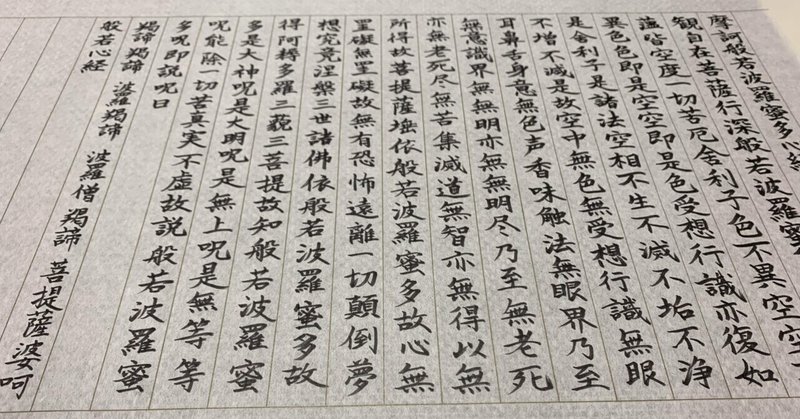 摩訶般若波羅蜜多心経
観自在菩薩行深般若波羅蜜多
蘊皆空度一切苦厄舎利子色不異空空
異色色即是空空即是色受想行識亦復如
是舎利子是諸法空相不生不滅不垢不浄
不増不減是故空中無色無受想行識無眼
耳鼻舌身意無色声香味触法無眼界乃至
無意識界無無明亦無無明尽乃至無老死
亦無老死尽無苦集滅道無智亦無得以無
所得故菩提薩埵依般若波羅蜜多故心無
罣礙無罣礙故無有恐怖遠離一切顛倒夢
想究竟涅槃三世諸佛依般若波羅蜜多故
得阿耨多羅三藐三菩提故知般若波羅蜜
多是大神呪是大明呪是無上呪是無等等
呪能除一切苦真実不虚故説般若波羅蜜
多呪即説呪曰
羯諦羯諦 波羅羯諦 波羅僧羯諦 菩提薩婆呵
般若心経